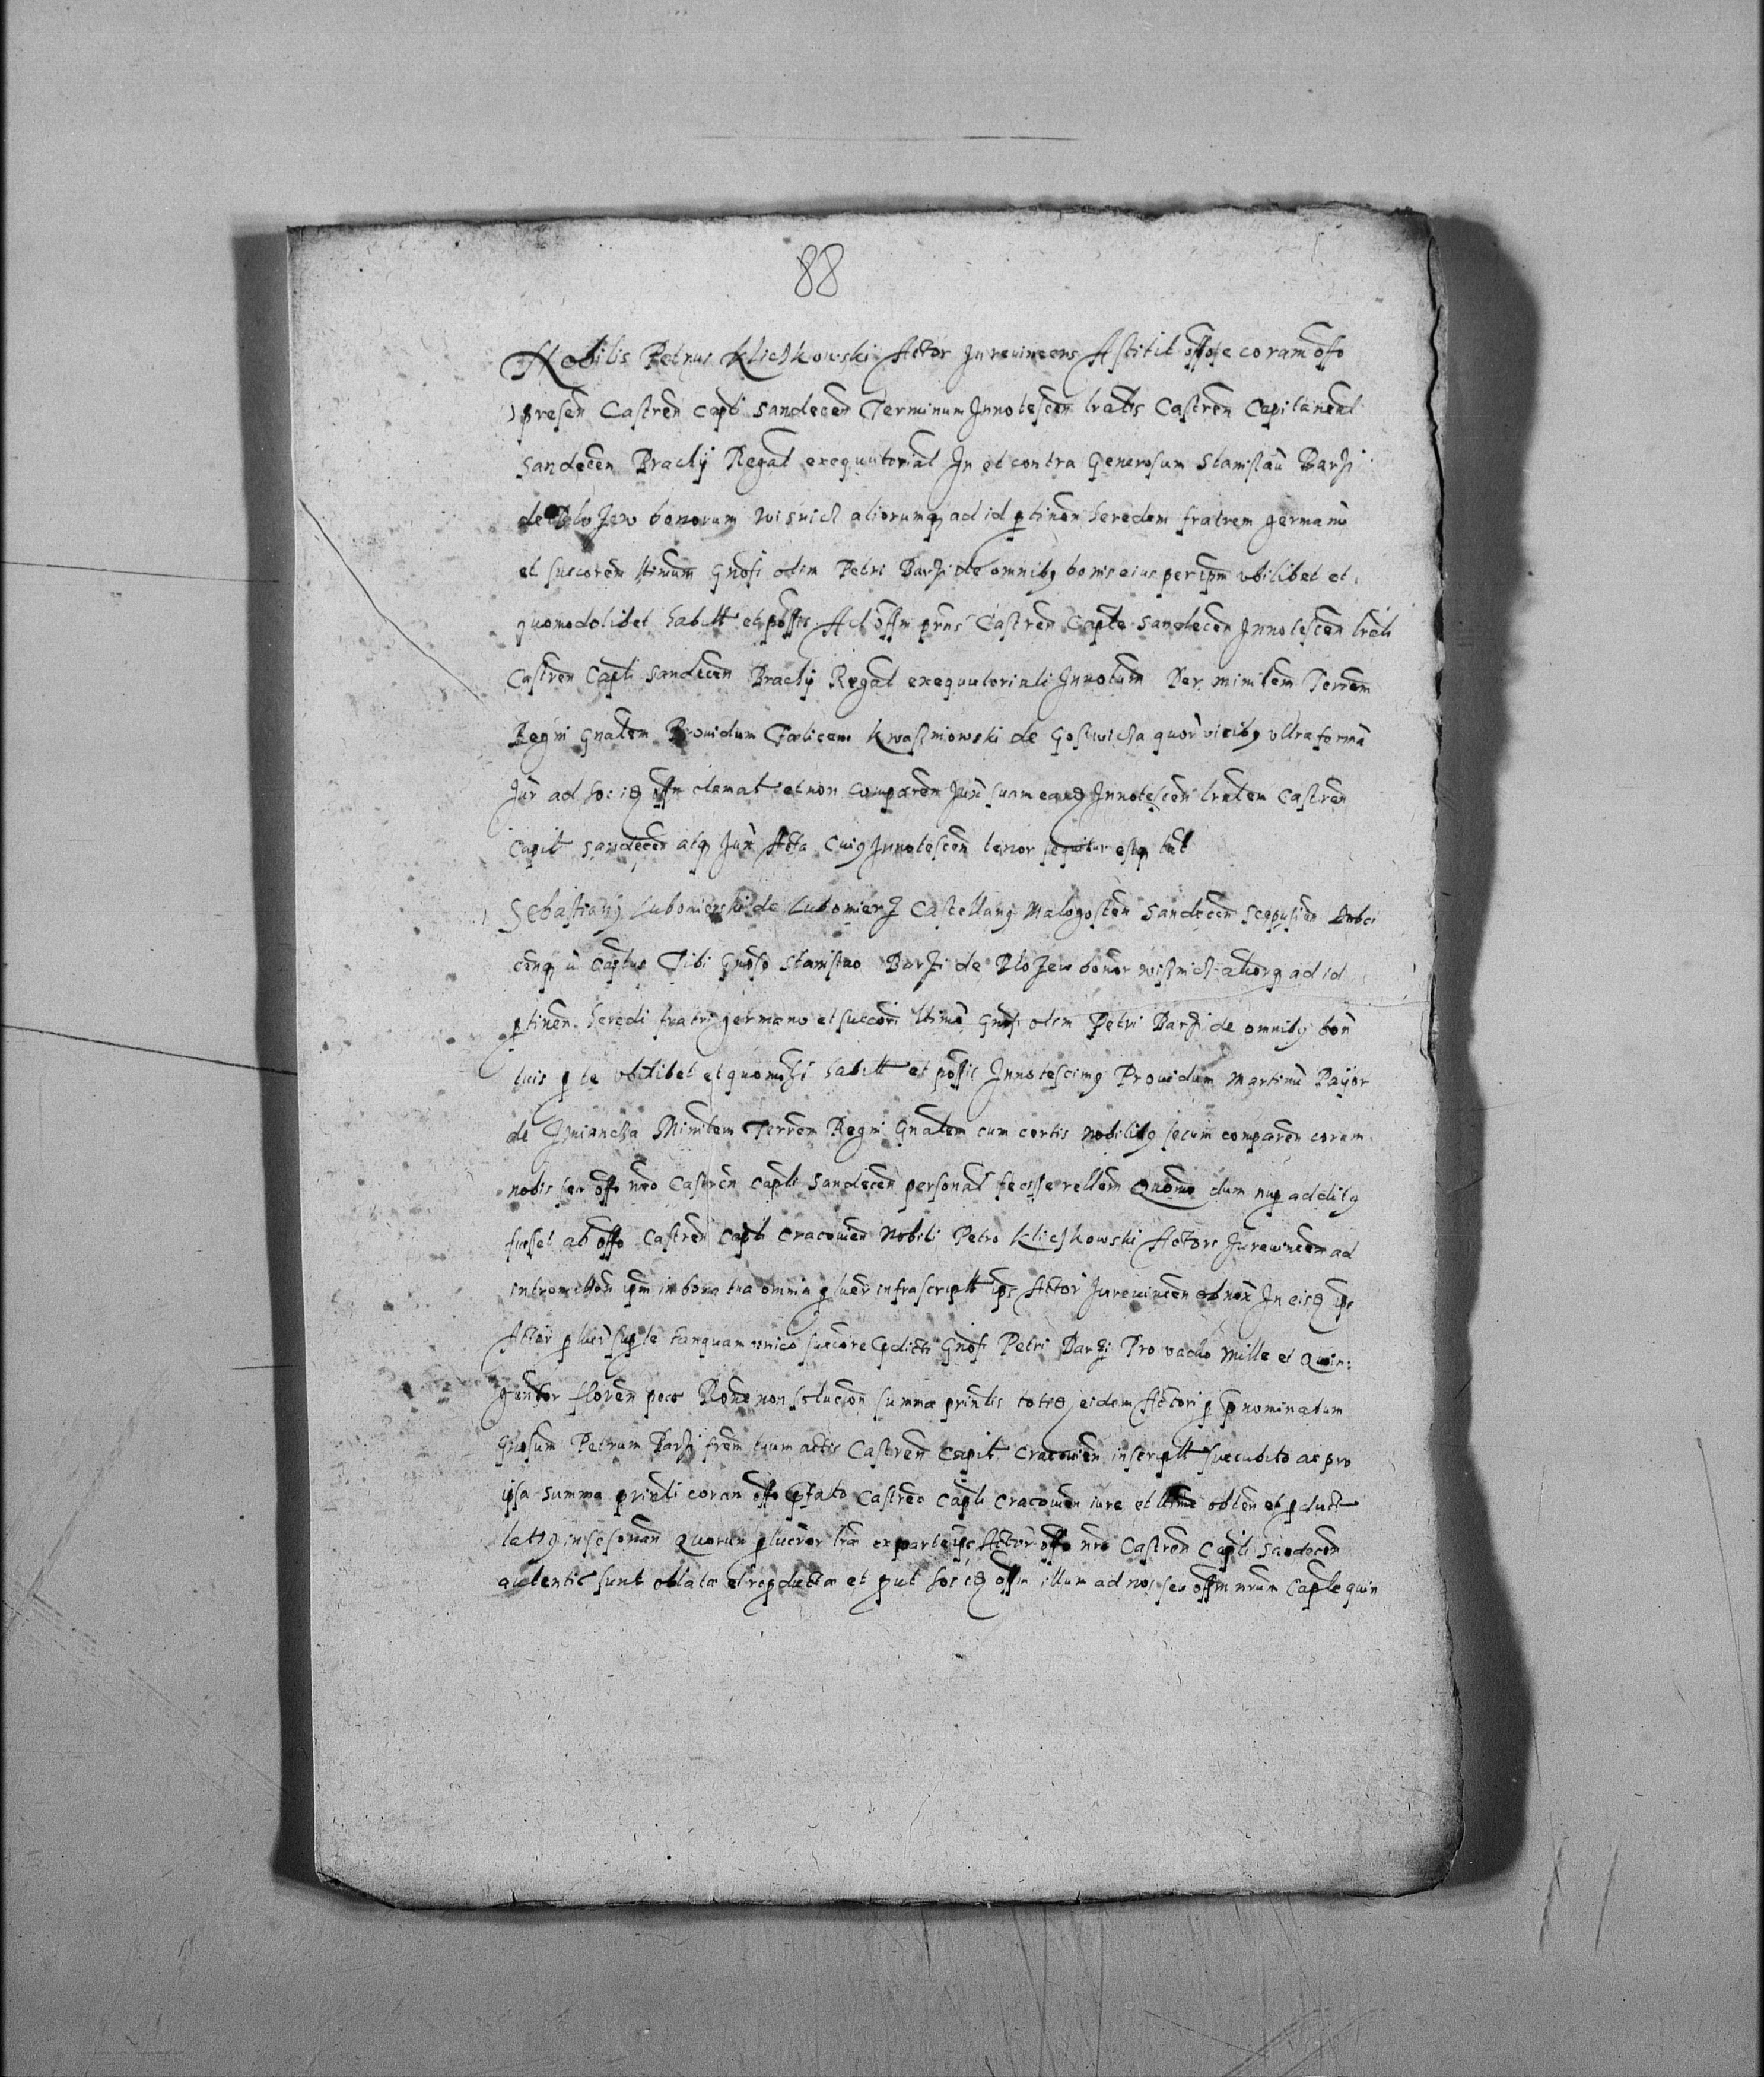 88
Nobilis Petrus Kliczkowski Actor Jurevincens Astitit offose coram offo
presen Castren Capti Sandecen Terminum Innotescen lratis Castren Capitaneal
Sandecen Brachij Regal exequutorial In et contra Generosum Stanislau Barzi
de Blozew bonorum Wisnicz aliorumq ad id ptinen heredem fratrem germanu
et succorem ltimum Gnosi olim Petri Barzi de omnibq bonis eius per ipm vbilibet et
quomodolibet habitt et possis Ad offm prns Castren Capte Sandecen Innotescen lrali
Castren Capti Sandecen Brachij Regal exequutoriali Innotum Per minilem Terrem
Regni Gnalem Prouidum Foelicem Kwasniowski de Gostwicza quor vicibq vltra forma
Jur ad hoc offn clamat et non comparen Jux suam eand Innotescen lralem Castren
Capit Sandecen atq Jux Acta Cuiq Innotescen tenor sequitur estq tal
Sebastianq Lubomierski de Lubomierz Castellanq Malogosten Sandecen Scepusien Dobci
cenq Captus Tibi Gnoso Stanislao Barzi de Blozew bonor Wisnicz aliorq ad id
ptinen heredi fratri germano et succori ltimo Gnosi olim Petri Barzi de omnibq bon
tuis p te vbilibet et quomlt habitt et possis Innotescimq Prouidum Martinu Payor
de Zniancza Minilem Terrem Regni Gnalem cum certis Nobilibq secum comparen coram
nobis seu offo nro Castren Capti Sandecen personal fecisse rellem Quomo dum nup additq
fuisset ab offo Castren Capti Cracouien Nobili Petro Kliczkowski Actore Jurevincem ad
intromitten ipm in bona tua omnia p luer infrascriptt ips Actor Jurevincen In eisd ips
Actor p luer sup te tanquam vnico succore pdicti Gnosi Petri Barzi Pro vadio Mille et Quin:
gentor floren pecc non solucion summae prinlis totid eidem Actori p pnominatum
Gnosum Petrum Barzi frem tuum actis Castren Capit Cracouien inscriptt succubito ac pro
ipsa summa prinli coram offo pfato Castren Capti Cracouien iure et ltime obten et pduct
latiq insesonan Quorum plucror lrae ex parte ips Actor offo nro Castren Capti Sandecen
autentic sunt oblatae et repductae et put hoc id offm illum ad nos seu offm nrum Capte quin